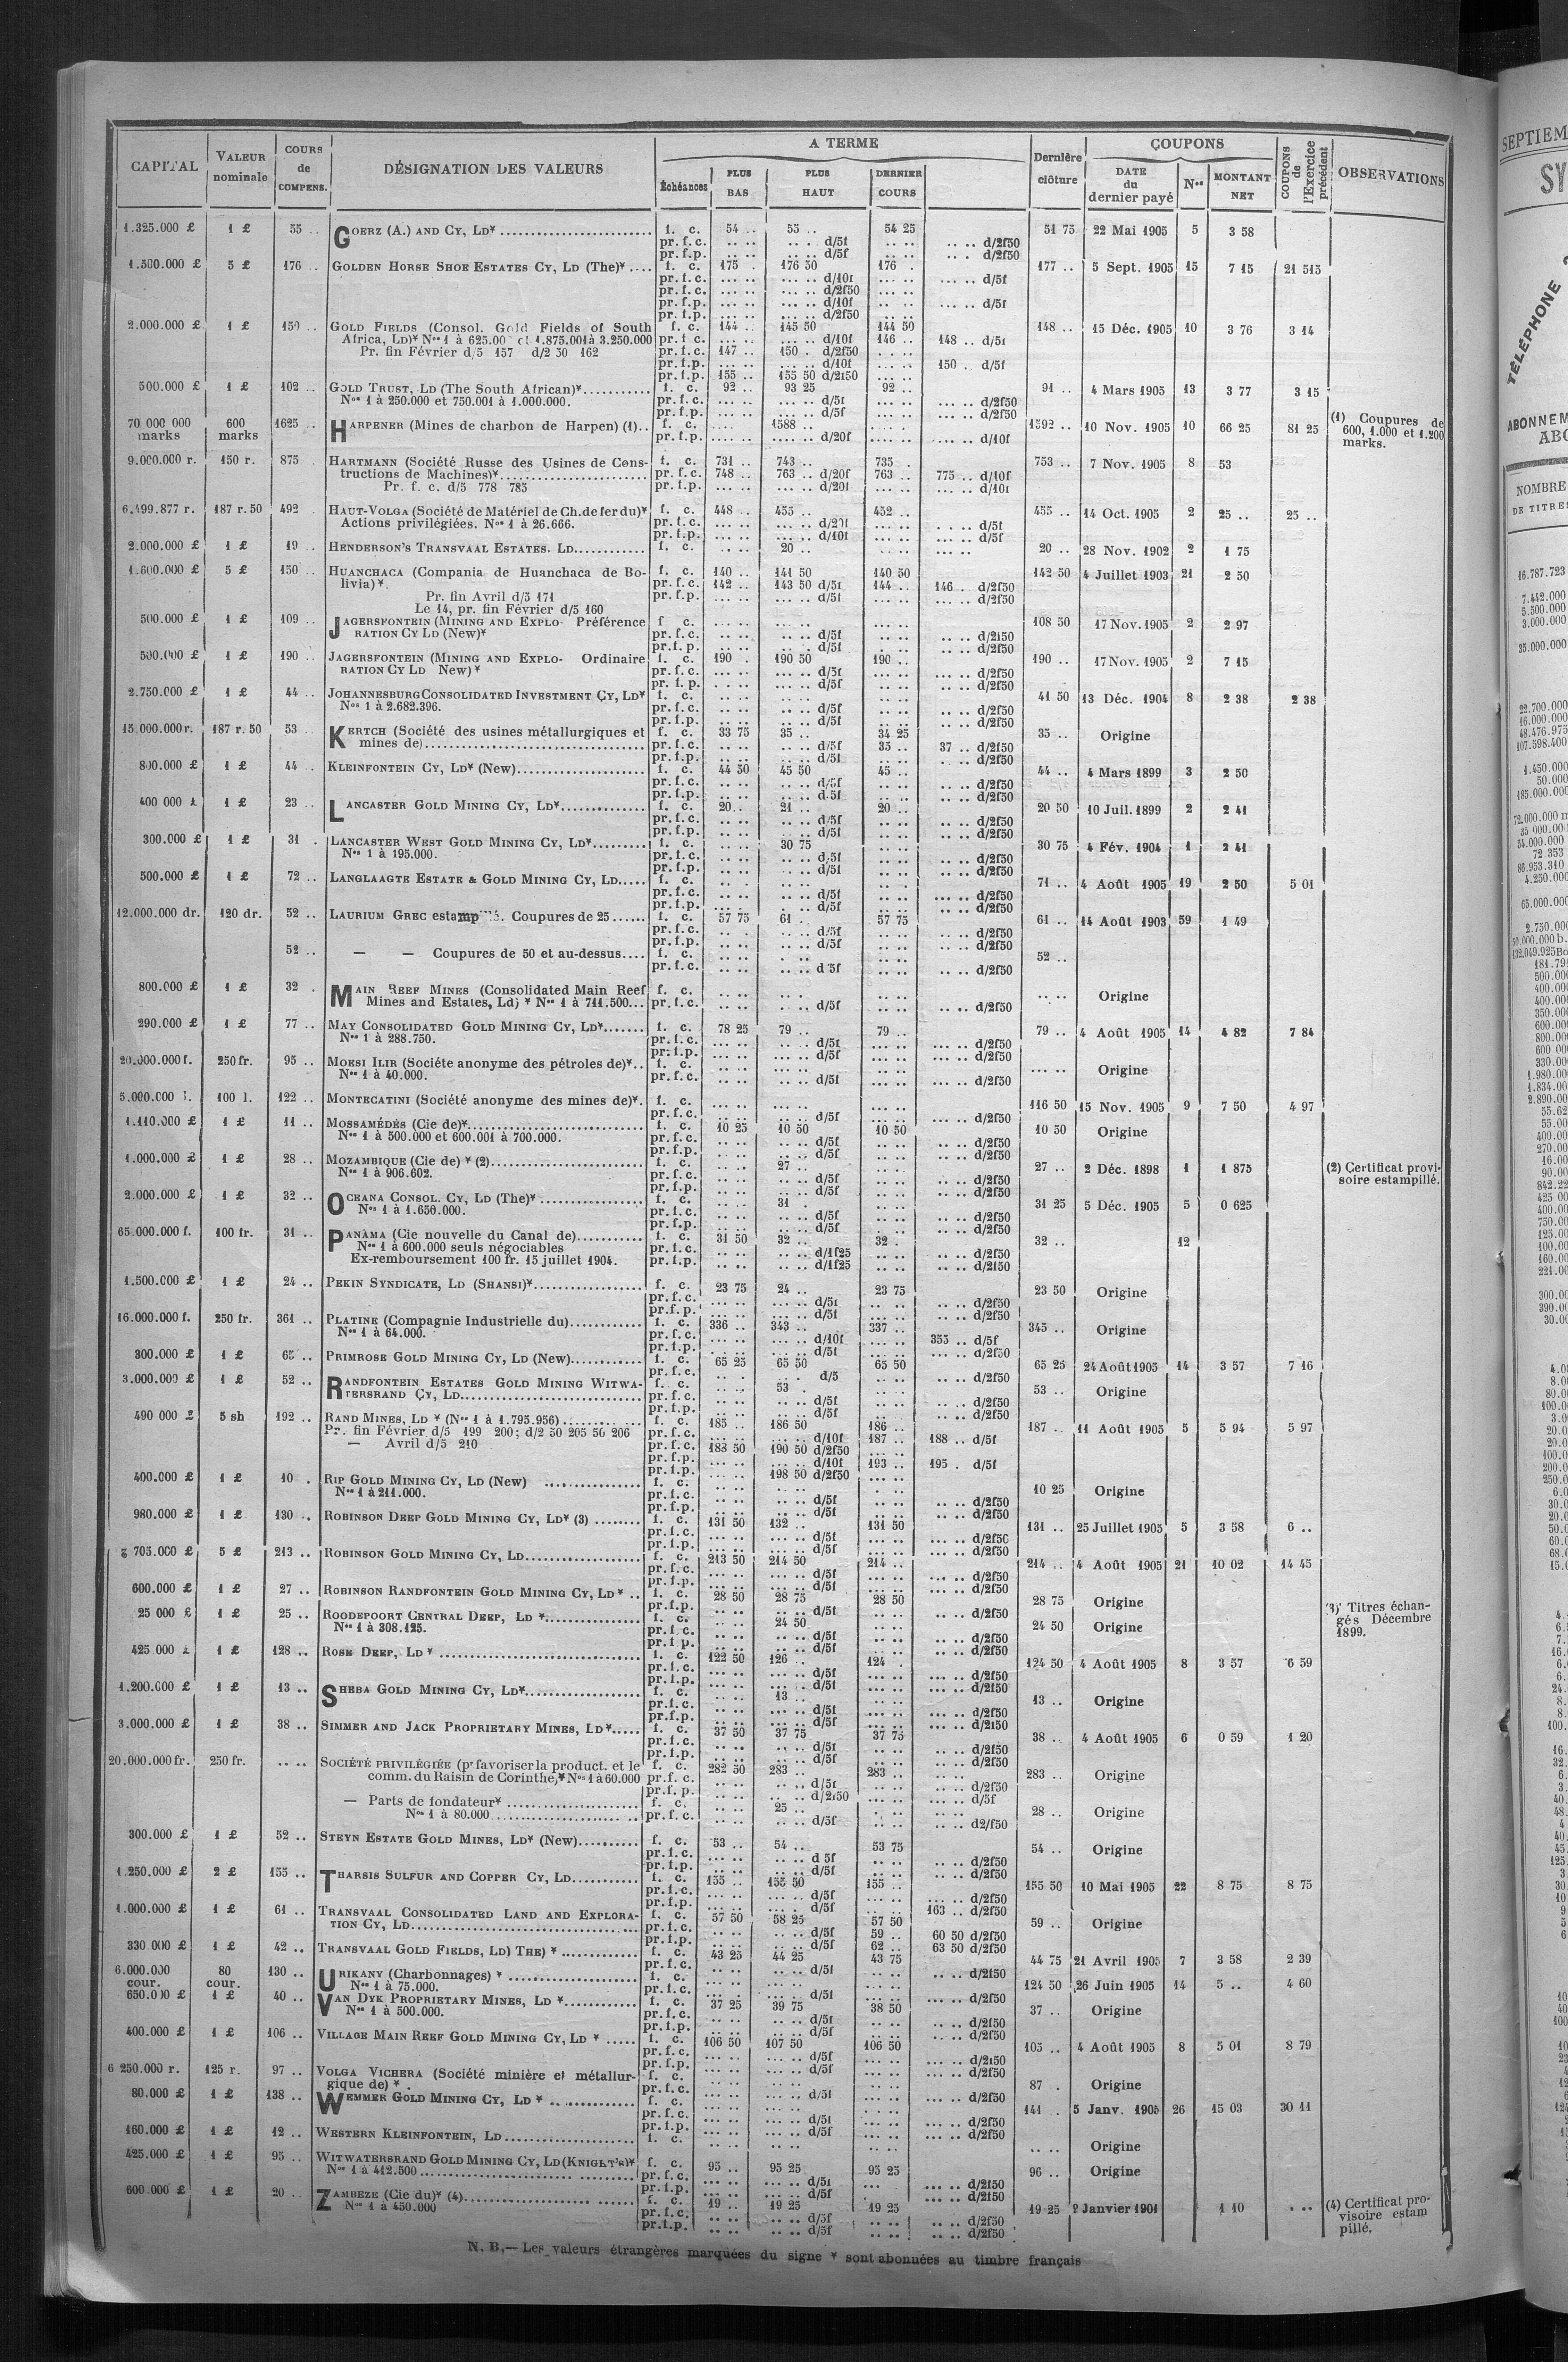 CAPITAL | VALEUR nominale | COURS de COMPENS. | DÉSIGNATION DES VALEURS | A TERME | Dernière clôture | COUPONS | COUPONS de l'Exercice précédent | OBSERVATIONS
Échéances | PLUS BAS | PLUS HAUT | DERNIER COURS | DATE du dernier payé | Nos | MONTANT NET
1.325.000 £ 1 £ 55 .. GOERZ (A.) AND CY, LD* f. c. 54 .. 55 .. 54 25 51 75 22 Mai 1905 5 3 58
pr. f. c. d/5f d/2f50
pr. f. p. d/5f d/2f50
1.500.000 £ 5 £ 176 .. GOLDEN HORSE SHOE ESTATES CY, LD (The)* f. c. 175 . 176 50 176 . 177 .. 5 Sept. 1905 15 7 15 21 515
pr. f. c. d/10f d/5f
pr. f. c. d/2f50
pr. f. p. d/10f d/5f
pr. f. p. d/2f50
2.000.000 £ 1 £ 150 .. GOLD FIELDS (Consol. Gold Fields of South f. c. 144 .. 145 50 144 50 148 .. 15 Déc. 1905 10 3 76 3 14
Africa, LD)* Nos 1 à 625.00 et 1.875.001 à 3.250.000 pr. f. c. d/10f 146 .. 148 .. d/5f
Pr. fin Février d/5 157 d/2 50 162 pr. f. c. 147 .. 150 . d/2f50
pr. f. p. d/10f 150 . d/5f
pr. f. p. 155 .. 155 50 d/2f50
500.000 £ 1 £ 102 .. GOLD TRUST, LD (The South African)* f. c. 92 .. 93 25 92 .. 91 .. 4 Mars 1905 13 3 77 3 15
Nos 1 à 250.000 et 750.001 à 1.000.000. pr. f. c. d/5f d/2f50
pr. f. p. d/5f d/2f50
70 000 000 marks 600 marks 1625 .. HARPENER (Mines de charbon de Harpen) (1).. f. c. 1588 .. 1592 .. 10 Nov. 1905 10 66 25 81 25 (1) Coupures de 600, 1.000 et 1.200 marks.
pr. f. p. d/20f d/10f
9.000.000 r. 150 r. 875 . HARTMANN (Société Russe des Usines de Cons- f. c. 731 .. 743 .. 735 . 753 .. 7 Nov. 1905 8 53
tructions de Machines)* pr. f. c. 748 .. 763 .. d/20f 763 .. 775 .. d/10f
Pr. f. c. d/5 778 785 pr. f. p. d/20f d/10f
6.499.877 r. 187 r. 50 492 . HAUT-VOLGA (Société de Matériel de Ch. de fer du)* f. c. 448 .. 455 .. 452 .. 455 .. 14 Oct. 1905 2 25 .. 25 ..
Actions privilégiées. Nos 1 à 26.666. pr. f. c. d/20f d/5f
pr. f. p. d/10f d/5f
2.000.000 £ 1 £ 19 .. HENDERSON'S TRANSVAAL ESTATES. LD. f. c. 20 .. 20 .. 28 Nov. 1902 2 1 75
1.600.000 £ 5 £ 150 .. HUANCHACA (Compania de Huanchaca de Bo- f. c. 140 .. 141 50 140 50 142 50 4 Juillet 1903 21 2 50
livia)*. pr. f. c. 142 .. 143 50 d/5f 144 .. 146 . d/2f50
Pr. fin Avril d/5 171 pr. f. p. d/5f d/2f50
Le 14, pr. fin Février d/5 160
500.000 £ 1 £ 109 .. JAGERSFONTEIN (MINING AND EXPLO- Préférence f. c. 108 50 17 Nov. 1905 2 2 97
RATION CY LD (New)* pr. f. c. d/5f d/2f50
pr. f. p. d/5f d/2f50
500.000 £ 1 £ 190 .. JAGERSFONTEIN (MINING AND EXPLO- Ordinaire f. c. 190 . 190 50 190 .. 190 .. 17 Nov. 1905 2 7 15
RATION CY LD New)* pr. f. c. d/5f d/2f50
pr. f. p. d/5f d/2f50
2.750.000 £ 1 £ 44 .. JOHANNESBURG CONSOLIDATED INVESTMENT CY, LD* f. c. 41 50 13 Déc. 1904 8 2 38 2 38
Nos 1 à 2.682.396. pr. f. c. d/5f d/2f50
pr. f. p. d/5f d/2f50
15.000.000 r. 187 r. 50 53 . KERTCH (Société des usines métallurgiques et f. c. 33 75 35 .. 34 25 35 .. Origine
mines de) pr. f. c. d/5f 35 .. 37 .. d/2f50
pr. f. p. d/5f d/2f50
800.000 £ 1 £ 44 .. KLEINFONTEIN CY, LD* (New) f. c. 44 50 45 50 45 .. 44 .. 4 Mars 1899 3 2 50
pr. f. c. d/5f d/2f50
pr. f. p. d/5f d/2f50
400 000 £ 1 £ 23 .. LANCASTER GOLD MINING CY, LD* f. c. 20.. 21 .. 20 .. 20 50 10 Juil. 1899 2 2 41
pr. f. c. d/5f d/2f50
pr. f. p. d/5f d/2f50
300.000 £ 1 £ 31 . LANCASTER WEST GOLD MINING CY, LD* f. c. 30 75 30 75 4 Fév. 1904 1 2 41
Nos 1 à 195.000. pr. f. c. d/5f d/2f50
pr. f. p. d/5f d/2f50
500.000 £ 1 £ 72 .. LANGLAAGTE ESTATE & GOLD MINING CY, LD f. c. 71 .. 4 Août 1905 19 2 50 5 01
pr. f. c. d/5f d/2f50
pr. f. p. d/5f d/2f50
12.000.000 dr. 120 dr. 52 .. LAURIUM GREC estampillé. Coupures de 25 f. c. 57 75 61 .. 57 75 61 .. 14 Août 1903 59 1 49
pr. f. c. d/5f d/2f50
pr. f. p. d/5f d/2f50
52 .. — — Coupures de 50 et au-dessus f. c. 52 ..
pr. f. c. d 5f d/2f50
800.000 £ 1 £ 32 . MAIN REEF MINES (Consolidated Main Reef f. c. Origine
Mines and Estates, Ld) * Nos 1 à 711.500 pr. f. c. d/5f d/2f50
290.000 £ 1 £ 77 .. MAY CONSOLIDATED GOLD MINING CY, LD* f. c. 78 25 79 .. 79 .. 79 .. 4 Août 1905 14 4 82 7 84
Nos 1 à 288.750. pr. f. c. d/5f d/2f50
pr. f. p. d/5f d/2f50
20.000.000 f. 250 fr. 95 .. MOESI ILIR (Sociéte anonyme des pétroles de)* f. c. Origine
Nos 1 à 40.000. pr. f. c. d/5f d/2f50
5.000.000 l. 100 l. 122 .. MONTECATINI (Société anonyme des mines de)*. f. c. 116 50 15 Nov. 1905 9 7 50 4 97
pr. f. c. d/5f d/2f50
1.110.000 £ 1 £ 11 .. MOSSAMÉDÈS (Cie de)* f. c. 10 25 10 50 10 50 10 50 Origine
Nos 1 à 500.000 et 600.001 à 700.000. pr. f. c. d/5f d/2f50
pr. f. p. d/5f d/2f50
1.000.000 £ 1 £ 28 .. MOZAMBIQUE (Cie de) * (2) f. c. 27 .. 27 .. 2 Déc. 1898 1 1 875 (2) Certificat provi-
Nos 1 à 906.602. pr. f. c. d/5f d/2f50 soire estampillé.
pr. f. p. d/5f d/2f50
2.000.000 £ 1 £ 32 .. OCEANA CONSOL. CY, LD (The)* f. c. 31 . 31 25 5 Déc. 1905 5 0 625
Nos 1 à 1.650.000. pr. f. c. d/5f d/2f50
pr. f. p. d/5f d/2f50
65.000.000 f. 100 fr. 31 .. PANAMA (Cie nouvelle du Canal de) f. c. 31 50 32 .. 32 . 32 .. 12
Nos 1 à 600.000 seuls négociables pr. f. c. d/1f25 d/2f50
Ex-remboursement 100 fr. 15 juillet 1904. pr. f. p. d/1f25 d/2f50
1.500.000 £ 1 £ 24 .. PEKIN SYNDICATE, LD (SHANSI)* f. c. 23 75 24 .. 23 75 23 50 Origine
pr. f. c. d/5f d/2f50
pr. f. p. d/5f d/2f50
16.000.000 f. 250 fr. 361 .. PLATINE (Compagnie Industrielle du) f. c. 336 .. 343 .. 337 .. 345 .. Origine
Nos 1 à 64.000. pr. f. c. d/10f 353 .. d/5f
pr. f. p. d/5f d/2f50
300.000 £ 1 £ 65 .. PRIMROSE GOLD MINING CY, LD (New) f. c. 65 25 65 50 65 50 65 25 24 Août 1905 14 3 57 7 16
pr. f. c. d/5 d/2f50
3.000.000 £ 1 £ 52 .. RANDFONTEIN ESTATES GOLD MINING WITWA- f. c. 53 . 53 .. Origine
TERSRAND CY, LD pr. f. c. d/5f d/2f50
pr. f. p. d/5f d/2f50
490 000 £ 5 sh 192 .. RAND MINES, LD * (Nos 1 à 1.795.956) f. c. 185 .. 186 50 186 .. 187 .. 11 Août 1905 5 5 94 5 97
Pr. fin Février d/5 199 200; d/2 50 205 50 206 pr. f. c. d/10f 187 .. 188 .. d/5f
— Avril d/5 210 pr. f. c. 188 50 190 50 d/2f50
pr. f. p. d/10f 193 .. 195 . d/5f
pr. f. p. 198 50 d/2f50
400.000 £ 1 £ 10 . RIP GOLD MINING CY, LD (New) f. c. 10 25 Origine
Nos 1 à 211.000. pr. f. c. d/5f d/2f50
pr. f. p. d/5f d/2f50
980.000 £ 1 £ 130 .. ROBINSON DEEP GOLD MINING CY, LD* (3) f. c. 131 50 132 .. 131 50 131 .. 25 Juillet 1905 5 3 58 6 ..
pr. f. c. d/5f d/2f50
pr. f. p. d/5f d/2f50
705.000 £ 5 £ 213 .. ROBINSON GOLD MINING CY, LD f. c. 213 50 214 50 214 .. 214 .. 4 Août 1905 21 10 02 14 45
pr. f. c. d/5f d/2f50
pr. f. p. d/5f d/2f50
600.000 £ 1 £ 27 .. ROBINSON RANDFONTEIN GOLD MINING CY, LD * .. f. c. 28 50 28 75 28 50 28 75 Origine (3) Titres échan-
pr. f. p. d/5f d/2f50 gés Décembre
25 000 £ 1 £ 25 .. ROODEPOORT CENTRAL DEEP, LD * f. c. 24 50 24 50 Origine 1899.
Nos 1 à 308.125. pr. f. c. d/5f d/2f50
pr. f. p. d/5f d/2f50
425 000 £ 1 £ 128 .. ROSE DEEP, LD * f. c. 122 50 126 .. 124 .. 124 50 4 Août 1905 8 3 57 6 59
pr. f. c. d/5f d/2f50
pr. f. p. d/5f d/2f50
1.200.000 £ 1 £ 13 .. SHEBA GOLD MINING CY, LD* f. c. 13 .. 13 .. Origine
pr. f. c. d/5f d/2f50
pr. f. p. d/5f d/2f50
3.000.000 £ 1 £ 38 .. SIMMER AND JACK PROPRIETARY MINES, LD* f. c. 37 50 37 75 37 75 38 .. 4 Août 1905 6 0 59 1 20
pr. f. c. d/5f d/2f50
pr. f. p. d/5f d/2f50
20.000.000 fr. 250 fr. .. .. SOCIÉTÉ PRIVILÉGIÉE (pr favoriser la product. et le f. c. 282 50 283 .. 283 .. 283 .. Origine
comm. du Raisin de Corinthe)* Nos 1 à 60.000 pr. f. c. d/5f d/2f50
pr. f. p. d/2f50 d/5f
— Parts de fondateur* f. c. 25 .. 28 .. Origine
Nos 1 à 80.000 pr. f. c. d/5f d2/f50
300.000 £ 1 £ 52 .. STEYN ESTATE GOLD MINES, LD* (New) f. c. 53 .. 54 .. 53 75 54 .. Origine
pr. f. c. d 5f d/2f50
pr. f. p. d/5f d/2f50
1.250.000 £ 2 £ 155 .. THARSIS SULFUR AND COPPER CY, LD f. c. 155 .. 155 50 155 .. 155 50 10 Mai 1905 22 8 75 8 75
pr. f. c. d/5f d/2f50
pr. f. p. d/5f 163 .. d/2f50
1.000.000 £ 1 £ 61 .. TRANSVAAL CONSOLIDATED LAND AND EXPLORA- f. c. 57 50 58 25 57 50 59 .. Origine
TION CY, LD pr. f. c. d/5f 59 .. 60 50 d/2f50
pr. f. p. d/5f 62 .. 63 50 d/2f50
330 000 £ 1 £ 42 .. TRANSVAAL GOLD FIELDS, LD) THE) * f. c. 43 25 44 25 43 75 44 75 21 Avril 1905 7 3 58 2 39
pr. f. c. d/5f d/2f50
6.000.000 cour. 80 cour. 130 .. URIKANY (Charbonnages) * f. c. 124 50 26 Juin 1905 14 5 .. 4 60
Nos 1 à 75.000. pr. f. c. d/5f d/2f50
650.000 £ 1 £ 40 .. VAN DYK PROPRIETARY MINES, LD * f. c. 37 25 39 75 38 50 37 .. Origine
Nos 1 à 500.000. pr. f. c. d/5f d/2f50
pr. f. p. d/5f d/2f50
400.000 £ 1 £ 106 .. VILLAGE MAIN REEF GOLD MINING CY, LD * f. c. 106 50 107 50 106 50 105 .. 4 Août 1905 8 5 01 8 79
pr. f. c. d/5f d/2f50
pr. f. p. d/5f d/2f50
6 250.000 r. 125 r. 97 .. VOLGA VICHERA (Société minière et métallur- f. c. 87 . Origine
gique de) * . pr. f. c. d/5f d/2f50
80.000 £ 1 £ 138 .. WEMMER GOLD MINING CY, LD * f. c. 141 . 5 Janv. 1905 26 15 03 30 11
pr. f. c. d/5f d/2f50
pr. f. p. d/5f d/2f50
160.000 £ 1 £ 12 .. WESTERN KLEINFONTEIN, LD f. c. .. .. Origine
425.000 £ 1 £ 95 .. WITWATERSRAND GOLD MINING CY, LD (KNIGHT'S)* f. c. 95 .. 95 25 95 25 96 .. Origine
Nos 1 à 412.500 pr. f. c. d/5f d/2f50
pr. f. p. d/5f d/2f50
600 000 £ 1 £ 20 .. ZAMBEZE (Cie du)* (4) f. c. 19 .. 19 25 19 25 19 25 2 Janvier 1901 1 10 (4) Certificat pro-
Nos 1 à 450.000 pr. f. c. d/5f d/2f50 visoire estam
pr. f. p. d/5f d/2f50 pillé.
N. B.— Les valeurs étrangères marquées du signe * sont abonnées au timbre français
SEPTIEM
SY
TÉLÉPHONE
ABONNEM
ABO
NOMBRE
DE TITRES